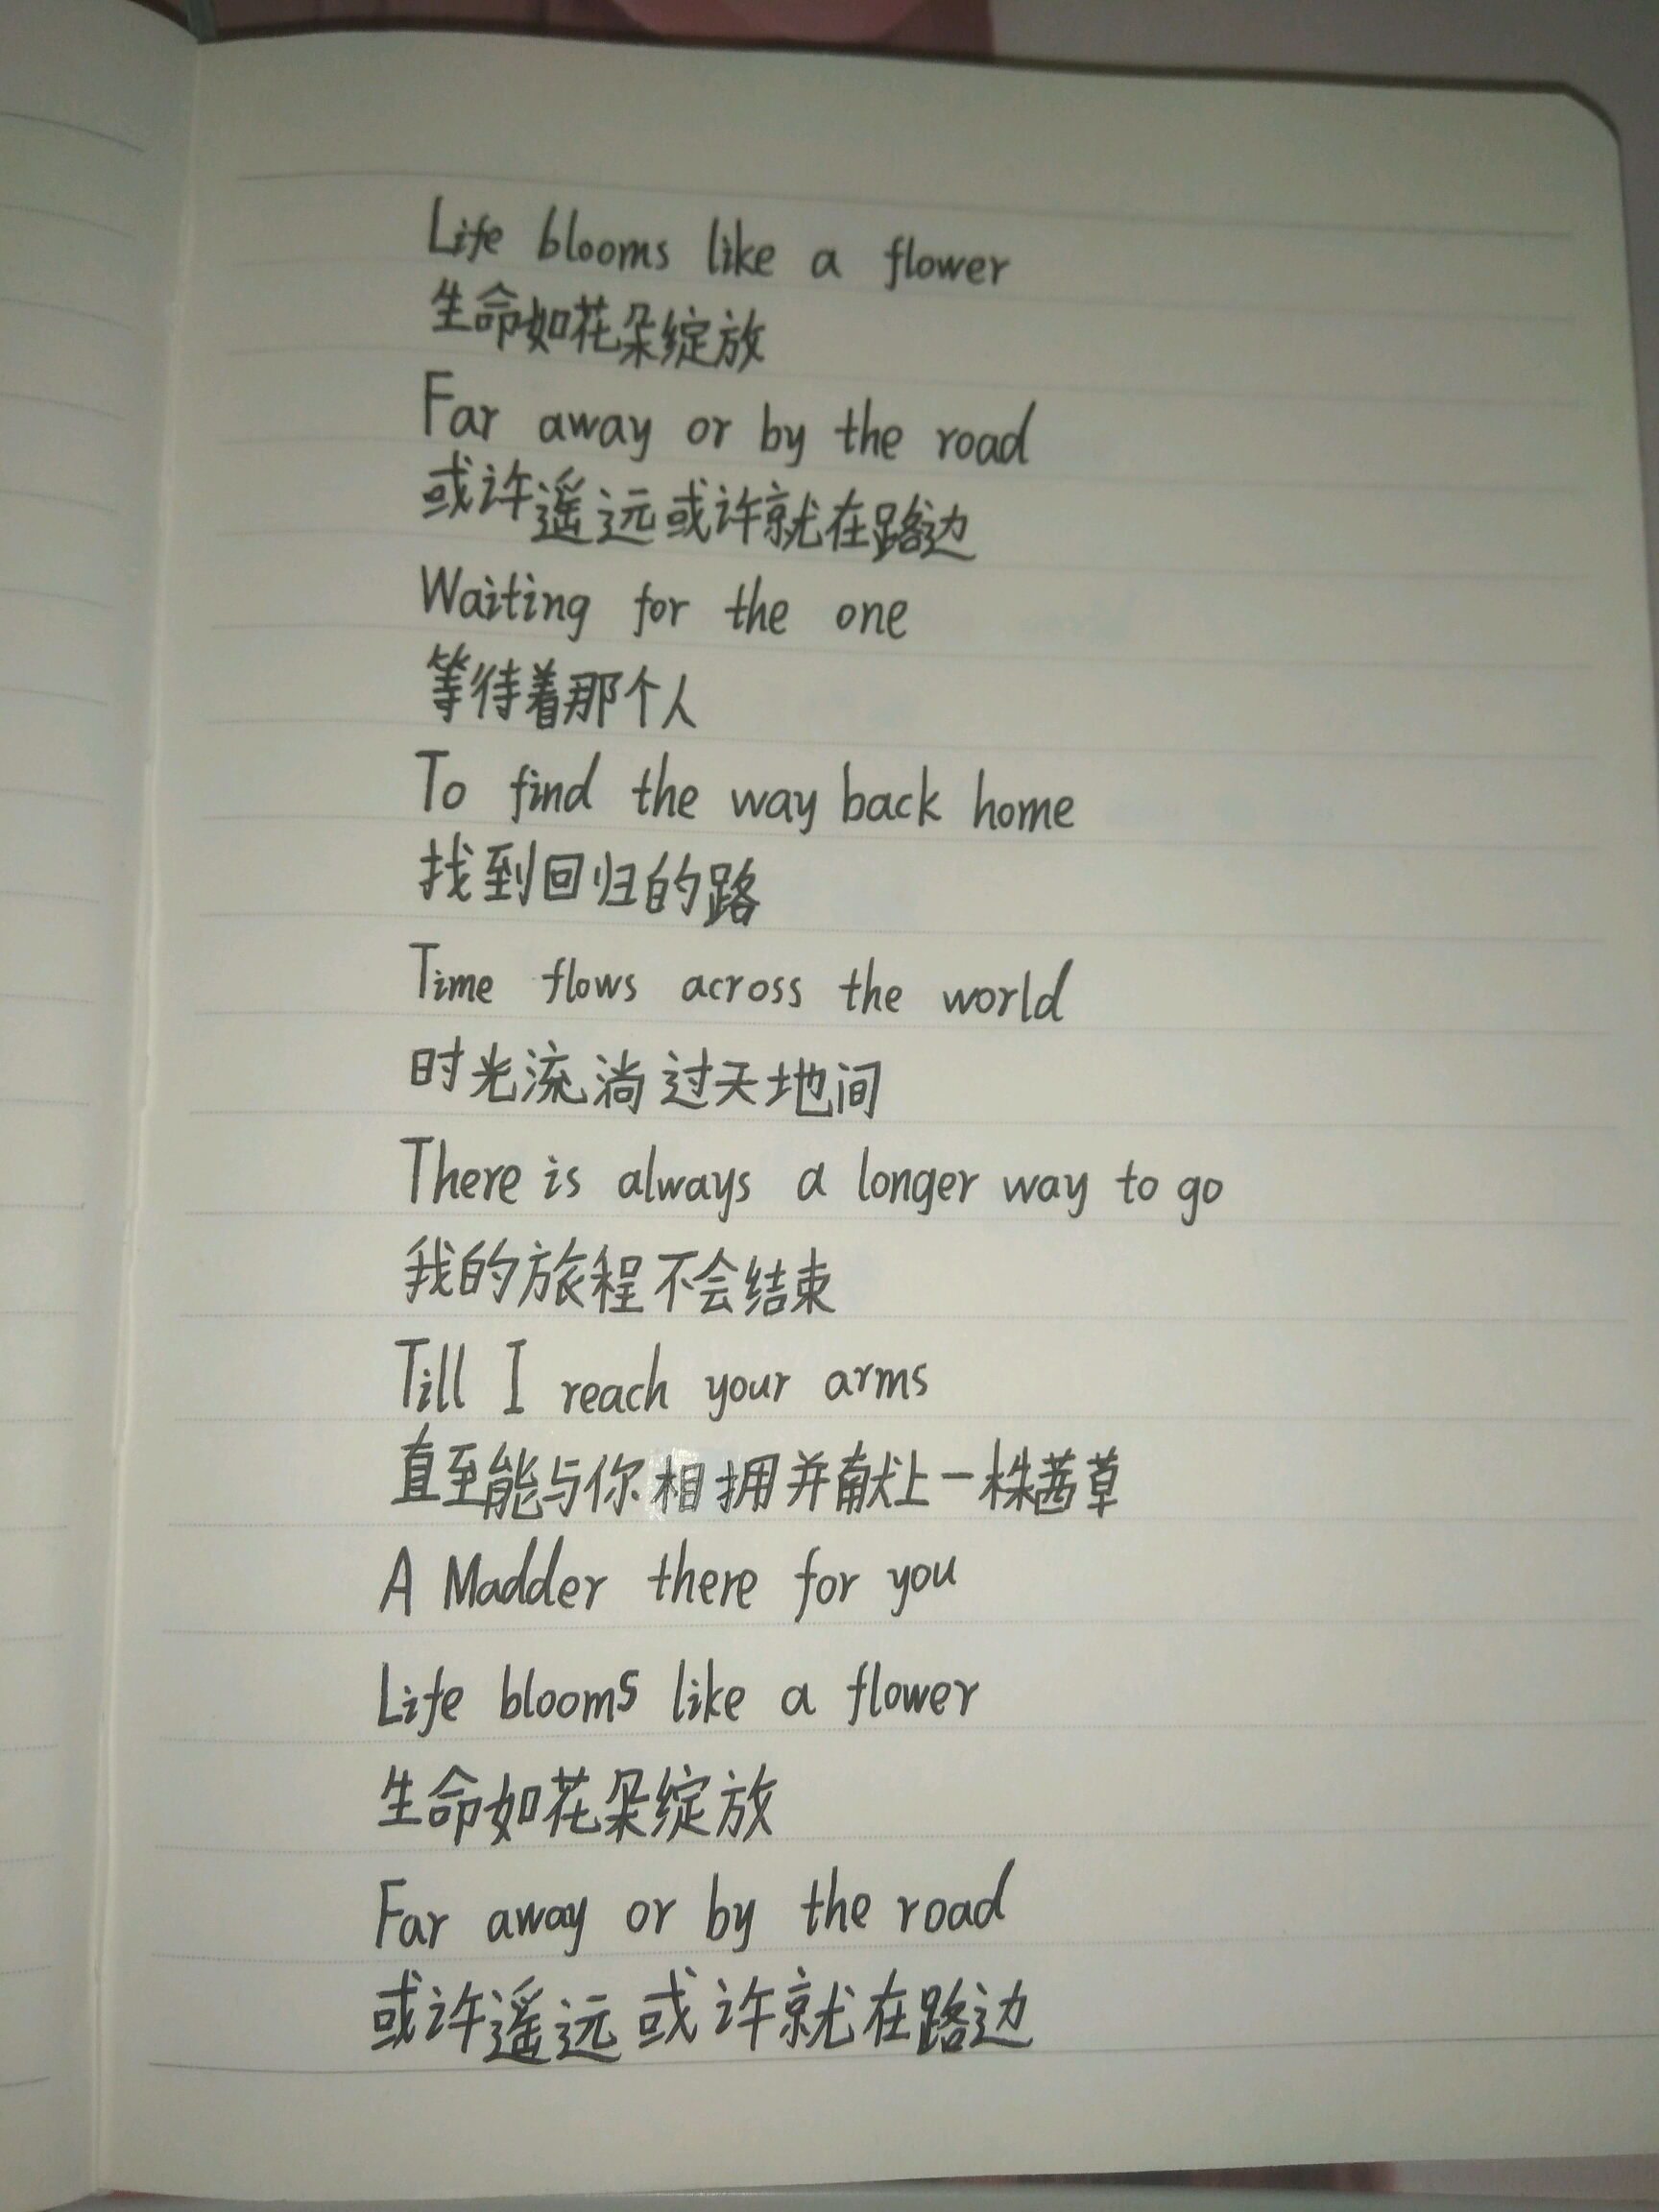 Life blooms like a flower
生命如花朵绽放
Far away or by the road
或许遥远或许就在路边
Waiting for the one
等待着那个人
To find the way back home
找到回归的路
Time flows across the world
时光流淌过天地间
There is always a longer way to go
我的旅程不会结束
Till I reach your arms
直至能与你相拥并献上一株茜草
A Madder there for you
Life blooms like a flower
生命如花朵绽放
Far away or by the road
或许遥远或许就在路边